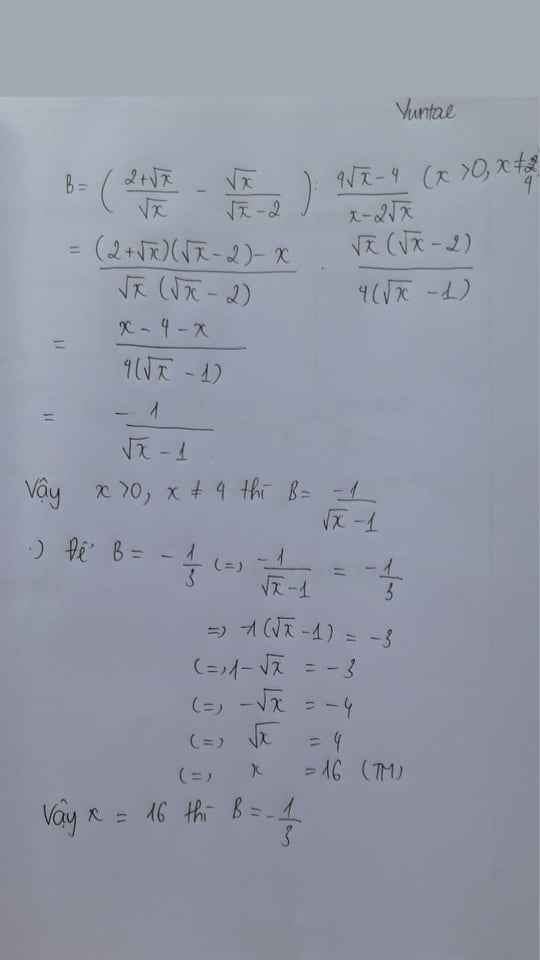 Yuntae
B = ( (2+√x)/√x - √x/(√x-2) ) : (4√x-4)/(x-2√x) (x >0, x ≠ 4)
= ((2+√x)(√x-2)-x)/(√x (√x-2)) . (√x (√x-2))/(4(√x-1))
= (x-4-x)/(4(√x-1))
= -1/(√x-1)
Vậy x >0, x ≠ 4 thì B = -1/(√x-1)
.) Để B = -1/3 (=, -1/(√x-1) = -1/3
=, -1(√x-1) = -3
(=, 1-√x = -3
(=, -√x = -4
(=, √x = 4
(=, x = 16 (TM)
Vậy x = 16 thì B = -1/3